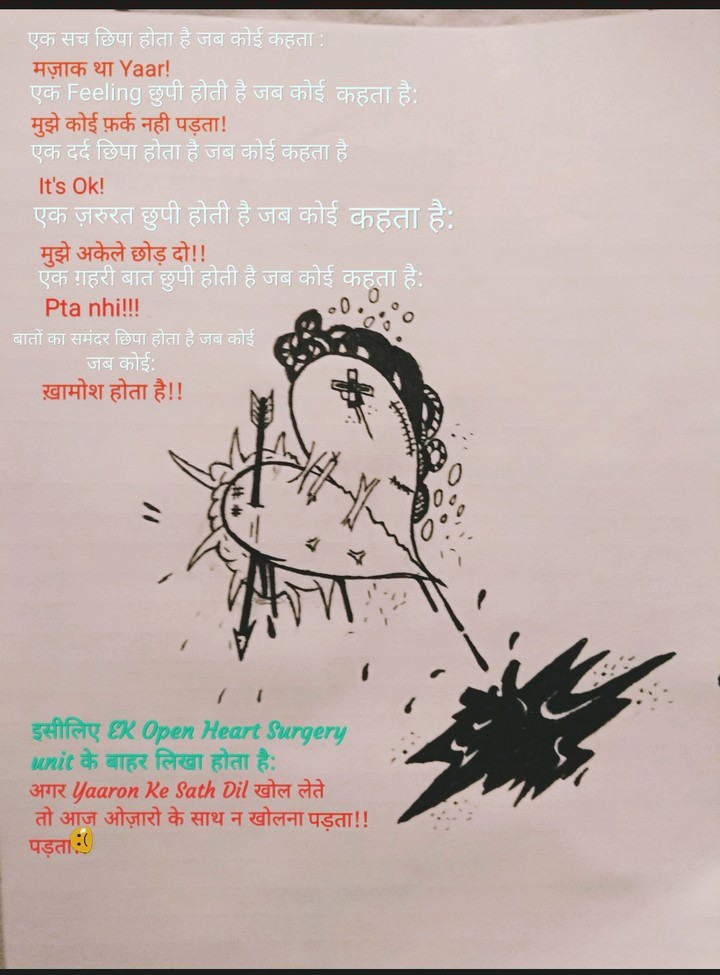 एक सच छिपा होता है जब कोई कहता :
मज़ाक था Yaar!
एक Feeling छुपी होती है जब कोई कहता है:
मुझे कोई फ़र्क नही पड़ता!
एक दर्द छिपा होता है जब कोई कहता है
It's Ok!
एक ज़रुरत छुपी होती है जब कोई कहता है:
मुझे अकेले छोड़ दो!!
एक ग़हरी बात छुपी होती है जब कोई कहता है:
Pta nhi!!!
बातों का समंदर छिपा होता है जब कोई
जब कोई:
ख़ामोश होता है!!
इसीलिए EK Open Heart Surgery
unit के बाहर लिखा होता है:
अगर Yaaron Ke Sath Dil खोल लेते
तो आज ओज़ारो के साथ न खोलना पड़ता!!
पड़ता